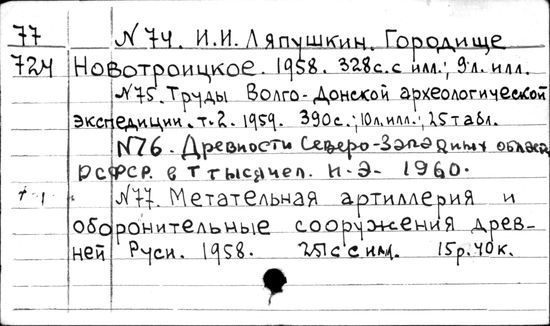 77 N 74. И.И. Ляпушкин. Городище
724 Новотроицкое. 1958. 328с.с илл.; 9л. илл.
N75. Труды Волго-Донской археологической
экспедиции. т. 2. 1959. 390с.; 10л.илл.; 25табл.
N76. Древности Северо-Западных област.
РСФСР. в I тысячел. н.э. 1960.
N77. Метательная артиллерия и
оборонительные сооружения древ-
ней Руси. 1958. 251с с илл. 15р.40к.